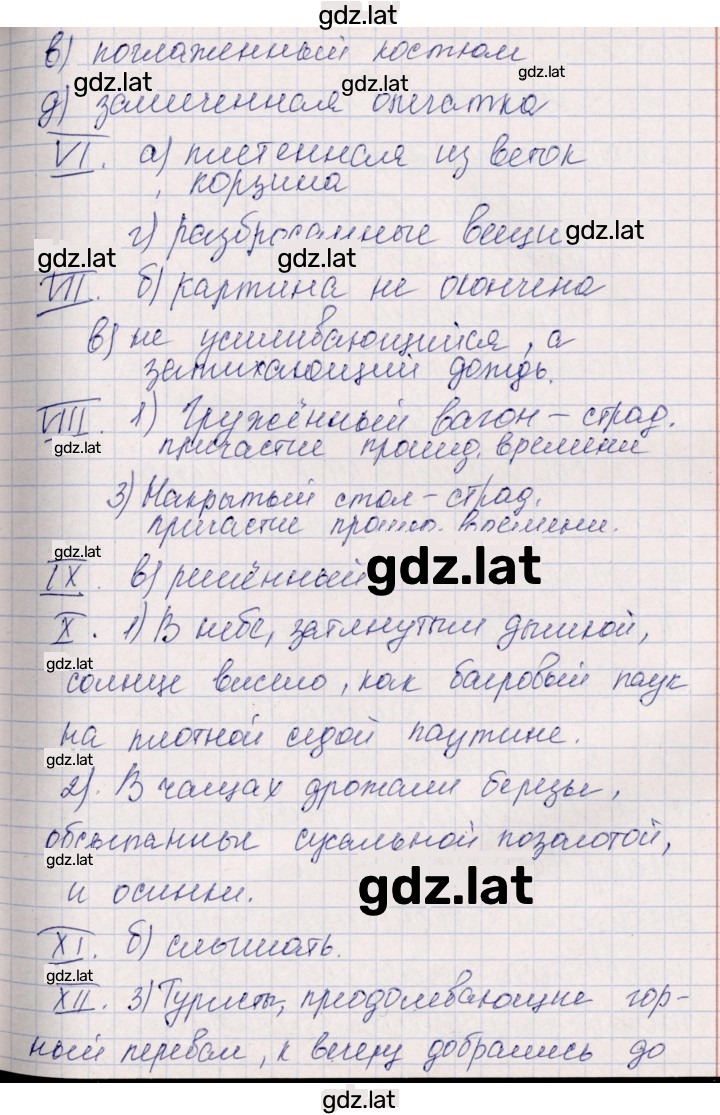 gdz.lat
в) поглаженный костюм
gdz.lat
gdz.lat
gdz.lat
д) замеченная опечатка
VI. а) плетенная из веток
корзина
г) разбросанные вещи
gdz.lat
gdz.lat
gdz.lat
VII. б) картина не окончена
в) не усиливающийся, а
затихающий дождь.
VIII. 1) Гружённый вагон – страд.
gdz.lat
причастие прошед. времени
3) Накрытый стол – страд.
причастие прошед. времени.
gdz.lat
IX. в) решённый
gdz.lat
X. 1) В небе, затянутым дымкой,
gdz.lat
солнце висело, как багровый паук
на плотной седой паутине.
gdz.lat
2). В чащах дрожали березы,
обсыпанные сусальной позолотой,
gdz.lat
и осинки.
gdz.lat
XI. б) слышать.
gdz.lat
XII. 3) Туристы, преодолевающие гор-
ный перевал, к вечеру добрались до
gdz.lat